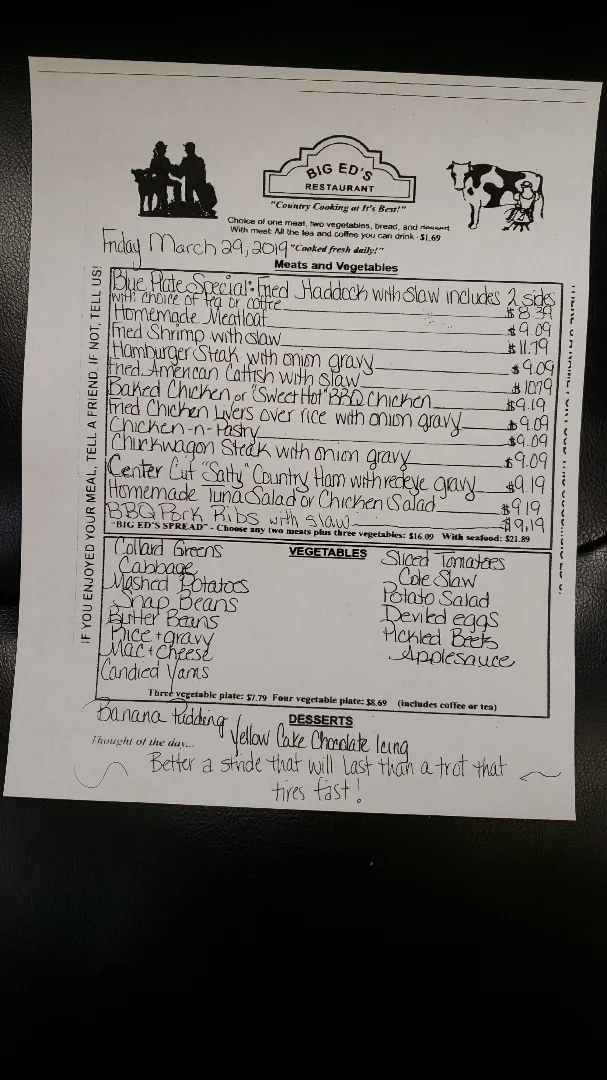 BIG ED'S
RESTAURANT
"Country Cooking at It's Best!"
Choice of one meat, two vegetables, bread, and dessert
With meal: All the tea and coffee you can drink - $1.69
Friday March 29, 2019 "Cooked fresh daily!"
Meats and Vegetables
Blue Plate Special: Fried Haddock with slaw includes 2 sides
with choice of tea or coffee $8.39
Homemade Meatloaf $9.09
Fried Shrimp with slaw $11.79
Hamburger Steak with onion gravy $9.09
Fried American Catfish with slaw $10.79
Baked Chicken or "Sweet Hot" BBQ Chicken $9.19
Fried Chicken Livers over rice with onion gravy $9.09
Chicken-n-Pastry $9.09
Chuckwagon Steak with onion gravy $9.09
Center Cut "Salty" Country Ham with redeye gravy $9.19
Homemade Tuna Salad or Chicken Salad $9.19
BBQ Pork Ribs with slaw $9.19
"BIG ED'S SPREAD" - Choose any two meats plus three vegetables: $16.09 With seafood: $21.89
VEGETABLES
Collard Greens
Cabbage
Mashed Potatoes
Snap Beans
Butter Beans
Rice + gravy
Mac + Cheese
Candied Yams
Sliced Tomatoes
Cole Slaw
Potato Salad
Deviled eggs
Pickled Beets
Applesauce
Three vegetable plate: $7.79 Four vegetable plate: $8.69 (includes coffee or tea)
DESSERTS
Banana Pudding Yellow Cake Chocolate Icing
Thought of the day...
Better a stride that will last than a trot that
tires fast!
IF YOU ENJOYED YOUR MEAL, TELL A FRIEND. IF NOT, TELL US!